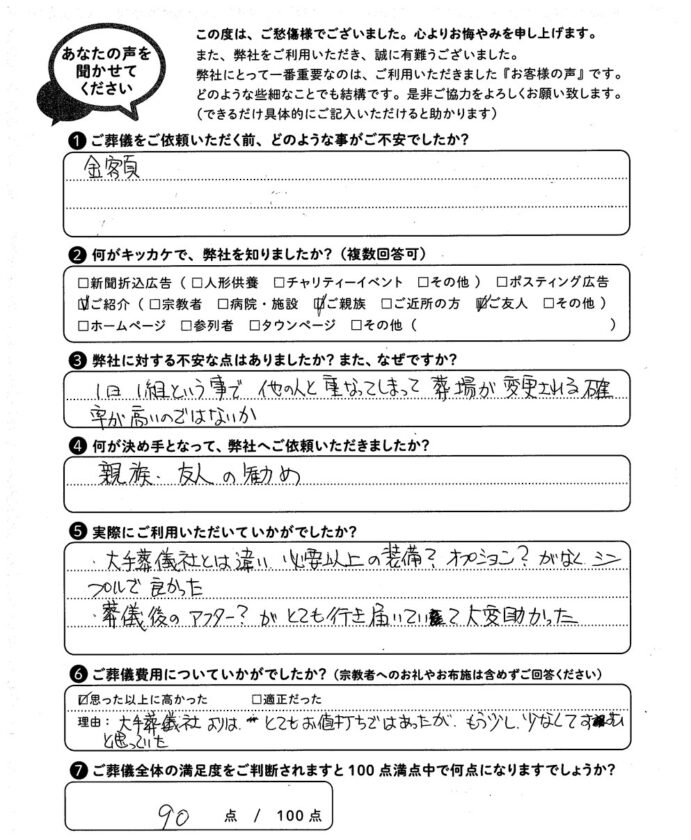 あなたの声を
聞かせて
ください
この度は、ご愁傷様でございました。心よりお悔やみを申し上げます。
また、弊社をご利用いただき、誠に有難うございました。
弊社にとって一番重要なのは、ご利用いただきました『お客様の声』です。
どのような些細なことでも結構です。是非ご協力をよろしくお願い致します。
（できるだけ具体的にご記入いただけると助かります）
❶ ご葬儀をご依頼いただく前、どのような事がご不安でしたか？
金額
❷ 何がキッカケで、弊社を知りましたか？（複数回答可）
□新聞折込広告（□人形供養 □チャリティーイベント □その他 ） □ポスティング広告
☑ご紹介（□宗教者 □病院・施設 ☑ご親族 □ご近所の方 ☑ご友人 □その他 ）
□ホームページ □参列者 □タウンページ □その他（ ）
❸ 弊社に対する不安な点はありましたか？また、なぜですか？
1日1組という事で 他の人と重なってしまって 葬場が変更される確
率が高いのではないか
❹ 何が決め手となって、弊社へご依頼いただきましたか？
親族・友人の勧め
❺ 実際にご利用いただいていかがでしたか？
・大手葬儀社とは違い 必要以上の装備？オプション？がなく シン
プルで良かった
・葬儀後のアフター？がとても行き届いていて大変助かった
❻ ご葬儀費用についていかがでしたか？（宗教者へのお礼やお布施は含めずご回答ください）
☑思った以上に高かった □適正だった
理由：大手葬儀社よりは、とてもお値打ちではあったが、もう少し、少なくてすむ
と思っていた
❼ ご葬儀全体の満足度をご判断されますと100点満点中で何点になりますでしょうか？
90 点 / 100点